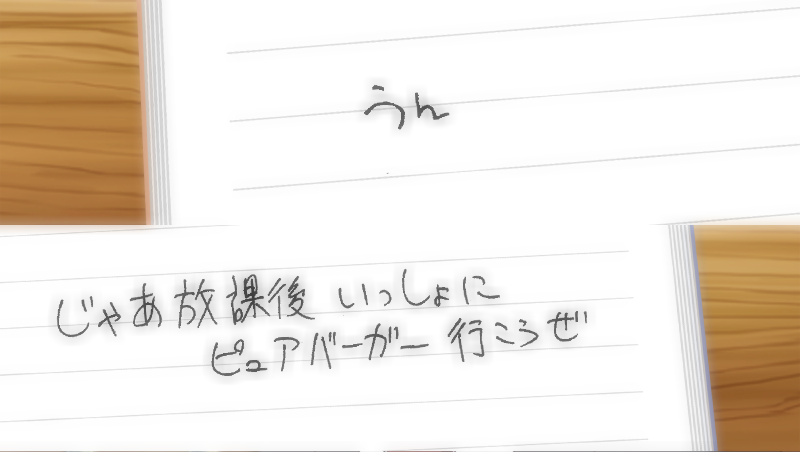 うん
じゃあ放課後 いっしょに
ピュアバーガー 行こうぜ